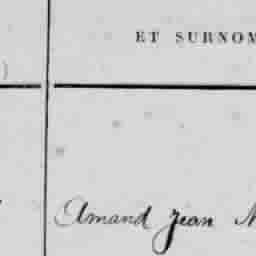 ET SURNOM
Amand Jean